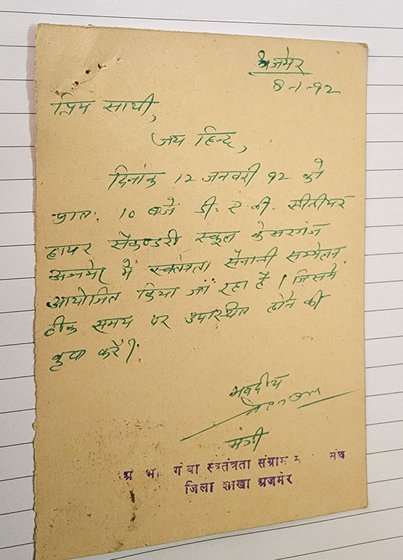 अजमेर
8-1-92
प्रिय साथी,
जय हिन्द,
दिनांक 12 जनवरी 92 को
प्रातः 10 बजे डी. ए. वी. सीनीयर
हायर सैकण्डरी स्कूल केसरगंज
अजमेर में स्वतंत्रता सेनानी सम्मेलन
आयोजित किया जा रहा है। जिसमें
ठीक समय पर उपस्थित होने की
कृपा करें।
भवदीय
मंत्री
स्वतंत्रता संग्राम
जिला शाखा अजमेर